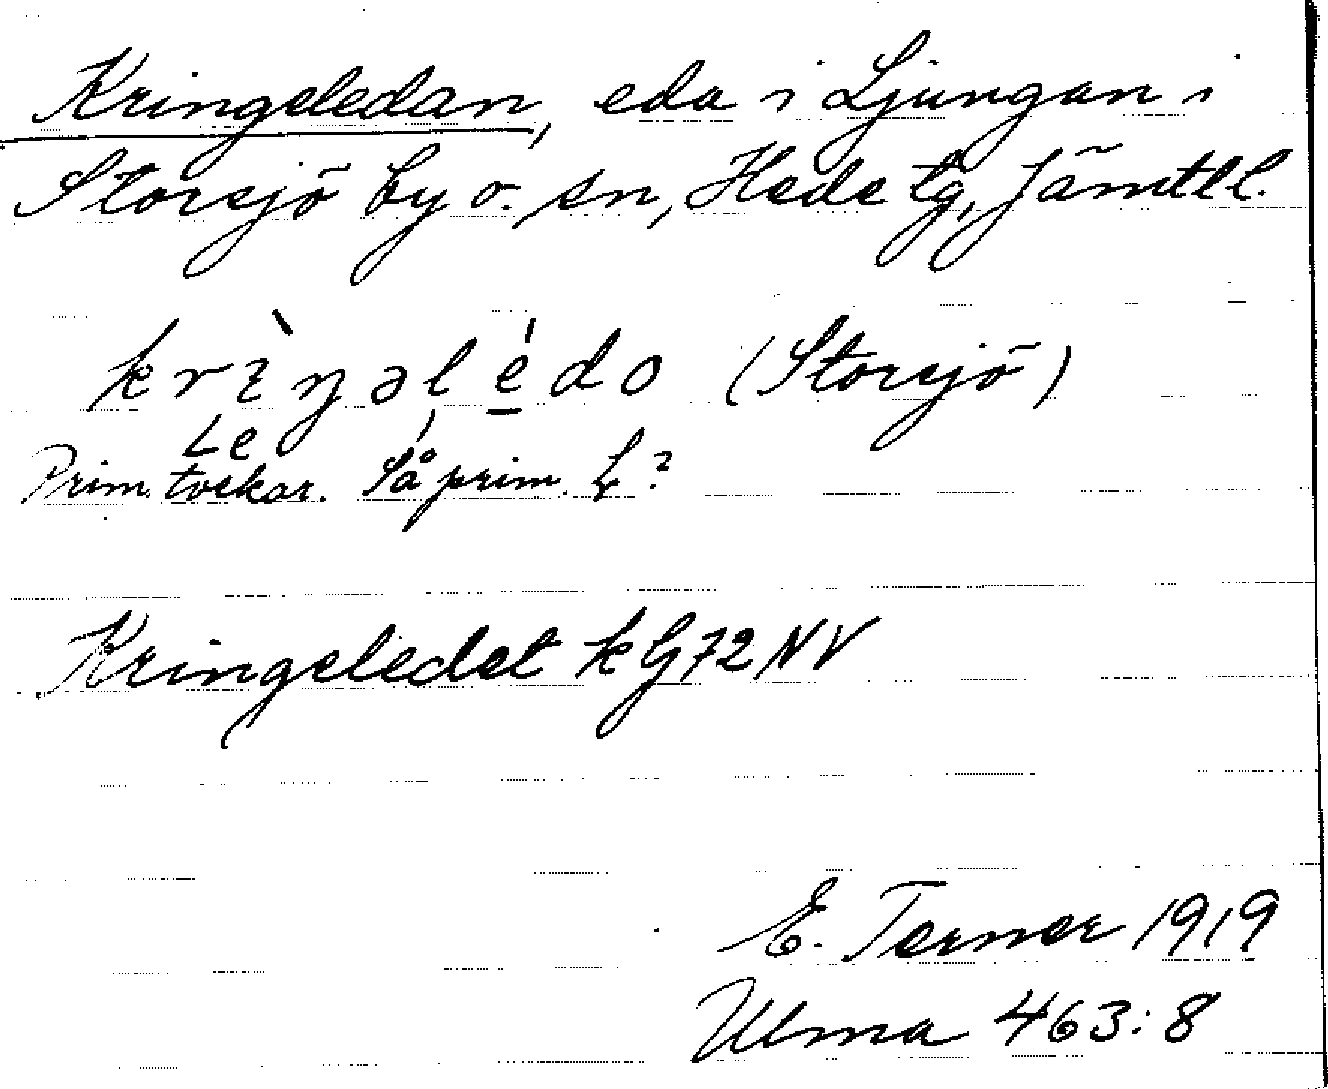 Kringeledan, eda i Ljungan i
Storsjö by o. sn, Hede tg, Jämtl l.
krìŋəlédo (Storsjö)
Le
Prim. tvekar. Så prim. L?
Kringeledet k G 72 NV
E. Terner 1919
Ulma 463:8